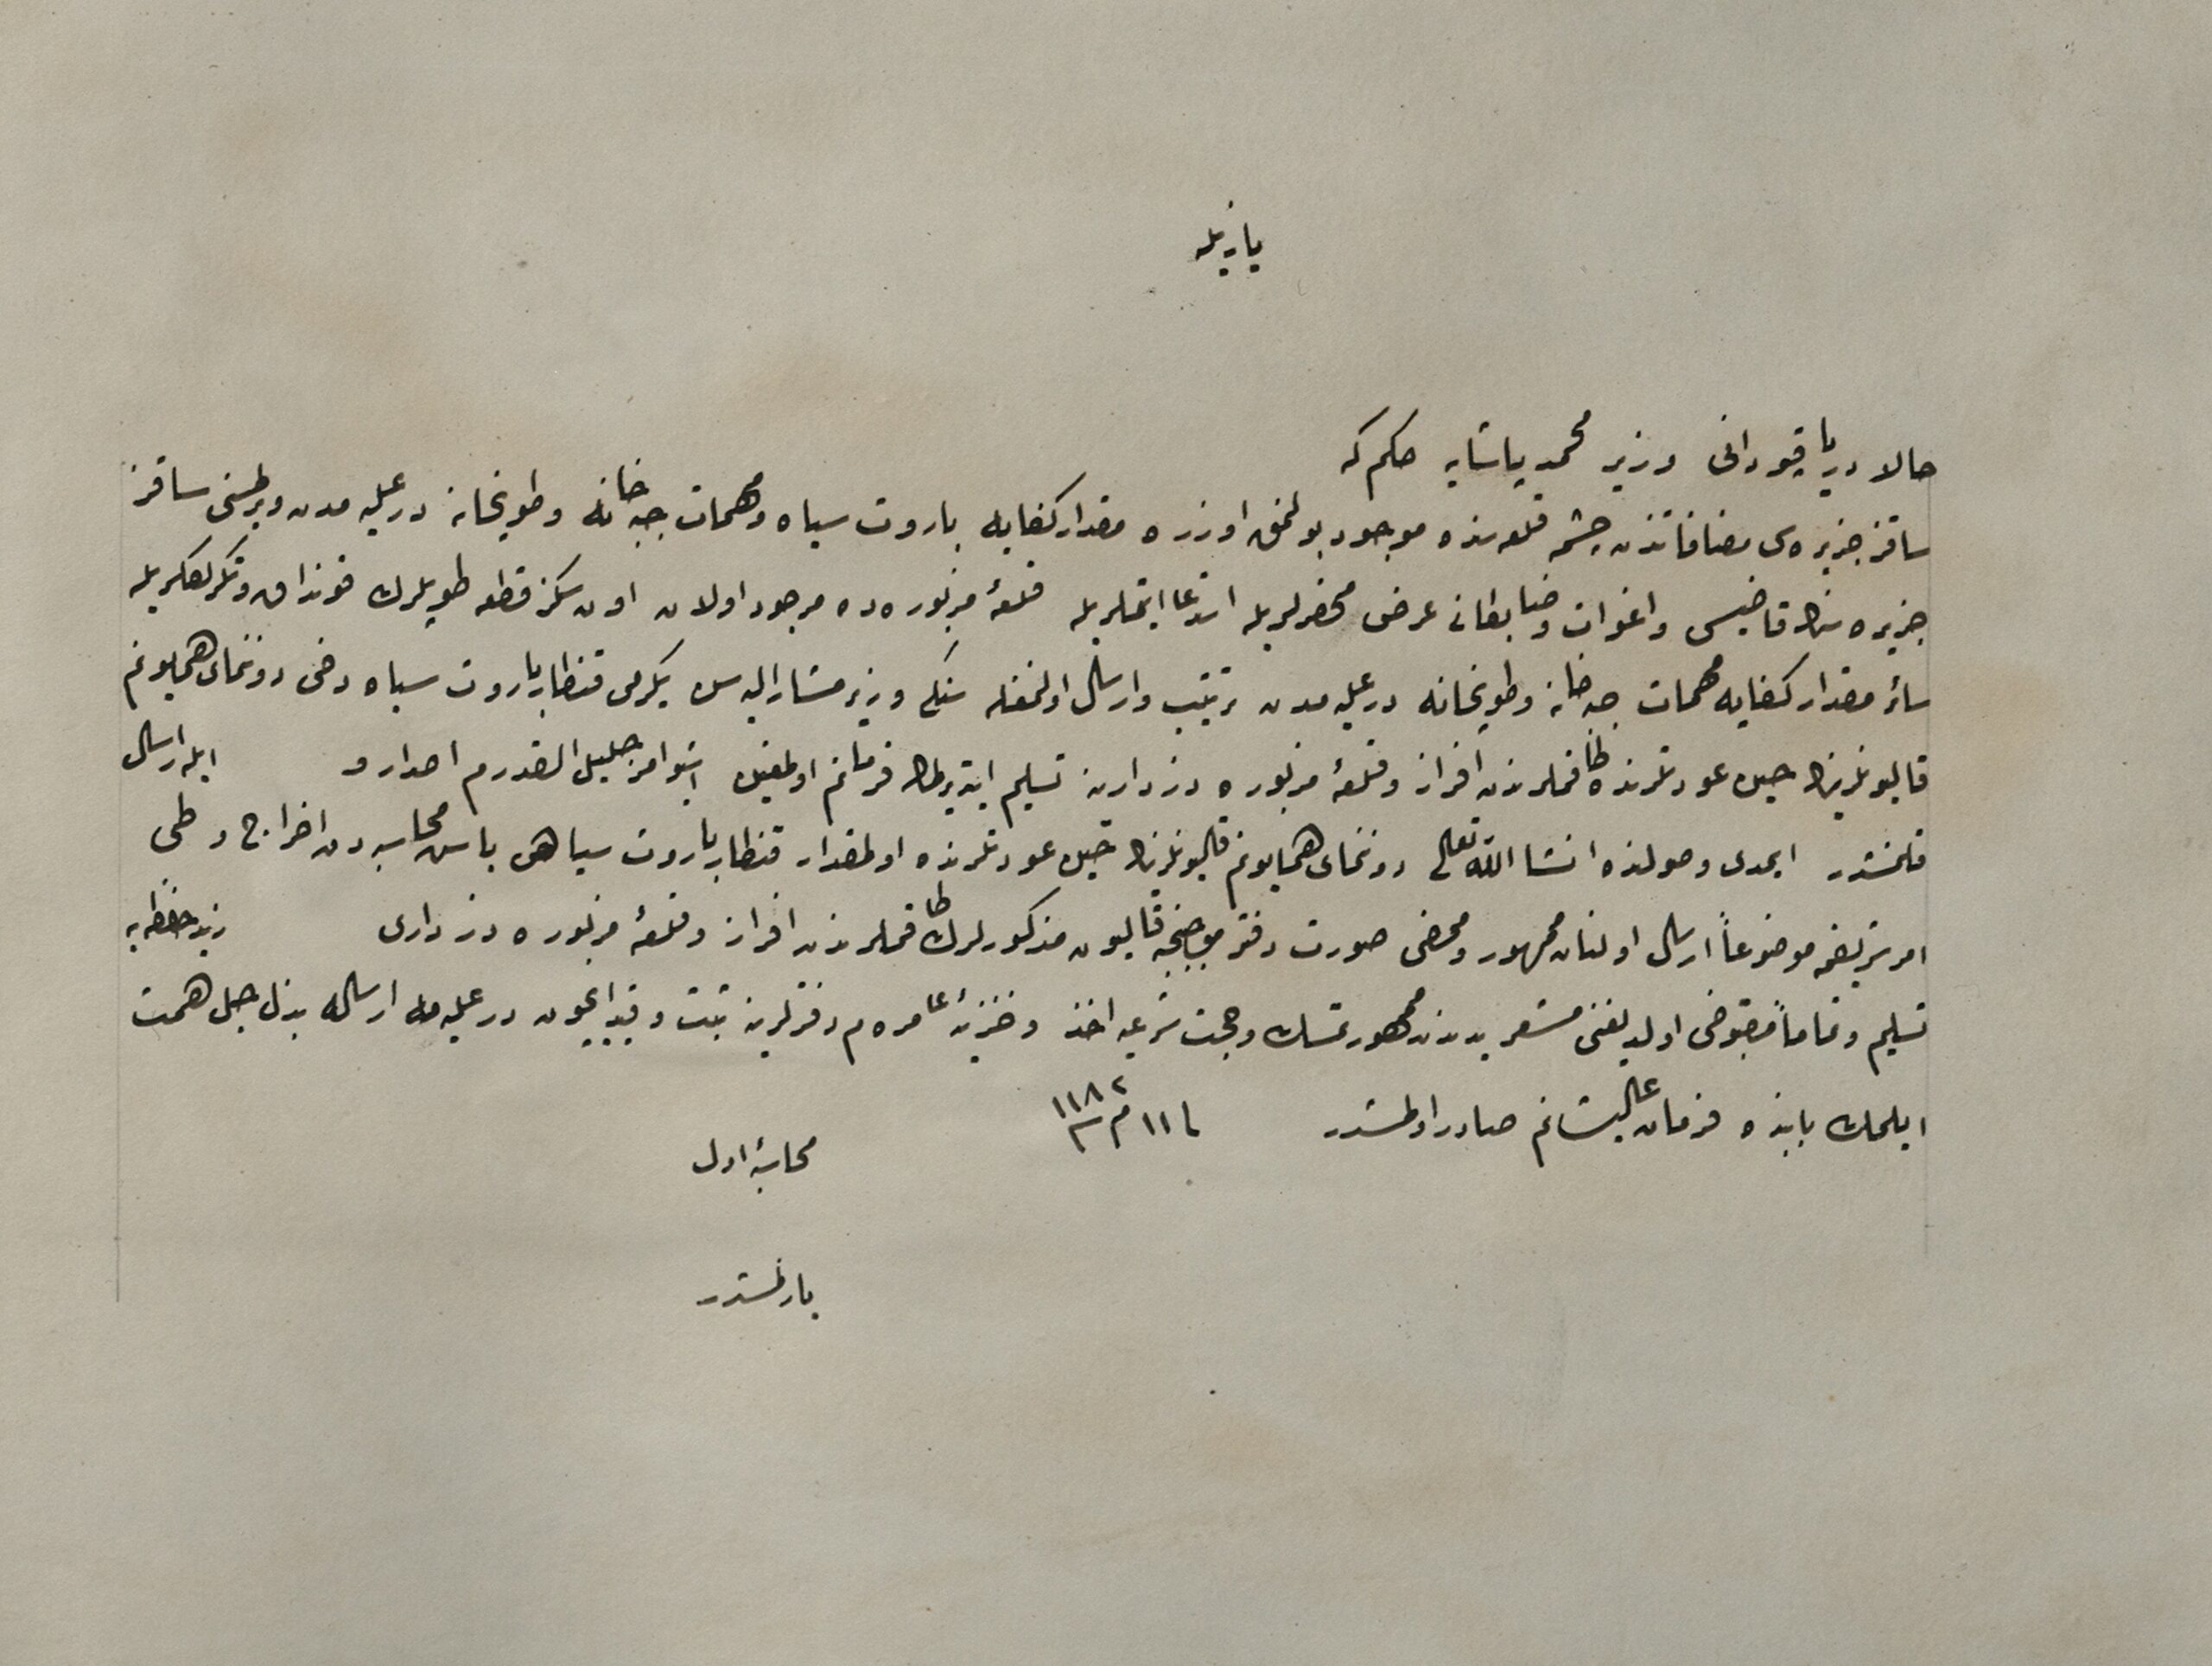 يازيله
حالا دريا قپودانى وزير محمد پاشايه حكم كه
ساقز جزيره‌سى مضافاتندن چشمه قلعه‌سنده موجود بولنمق اوزره مقدار كفايه باروت سياه ومهمات جبه خانه وطوپخانه درعليه مدن ويرلمسنى ساقز
جزيره سنك قاضيسى واغوات وضابطانى عرض محضرلريله استدعا ايتملريله قلعهٔ مزبوره ده موجود اولان اون سكز قطعه طوپلرك قونداق وتكرلكلريله
سائر مقدار كفايه مهمات جبه خانه وطوپخانه درعليه مدن ترتيب وارسال اولنمغله سنكه وزير مشار اليه سن يكرمى قنطار باروت سياه دخى دوننماى همايونم
قاليونلرينك حين عودتلرنده قملرندن افراز وقلعهٔ مزبوره دزدارينه تسليم ايتديرلمك فرمانم اولمغين اشبو امر جليل القدرم اصدار و ايله ارسال
قلنمشدر ايمدى وصولنده انشا الله تعالى دوننماى همايونم قاليونلرينك حين عودتلرنده اولمقدار قنطار باروت سياهى باش محاسبه دن اخراج وطى
امر شريفمه موضوعاً ارسال اولنان ممهور وممضى صورت دفتر موجبنجه قاليون مذكورلرك قملرندن افراز وقلعهٔ مزبوره دزدارى زيد حفظه يه
تسليم وتماماً مقبوضى اولديغنى مشعر يدندن ممهور تمسك وحجت شرعيه اخذ وخزينهٔ عامره م دفترلرينه ثبت وقيد ايچون درعليه مه ارساله بذل جل همت
ايلمك بابنده فرمان عاليشانم صادر اولمشدر فى ١١ م سنه ١١٨٢
محاسبهٔ اول
يازلمشدر